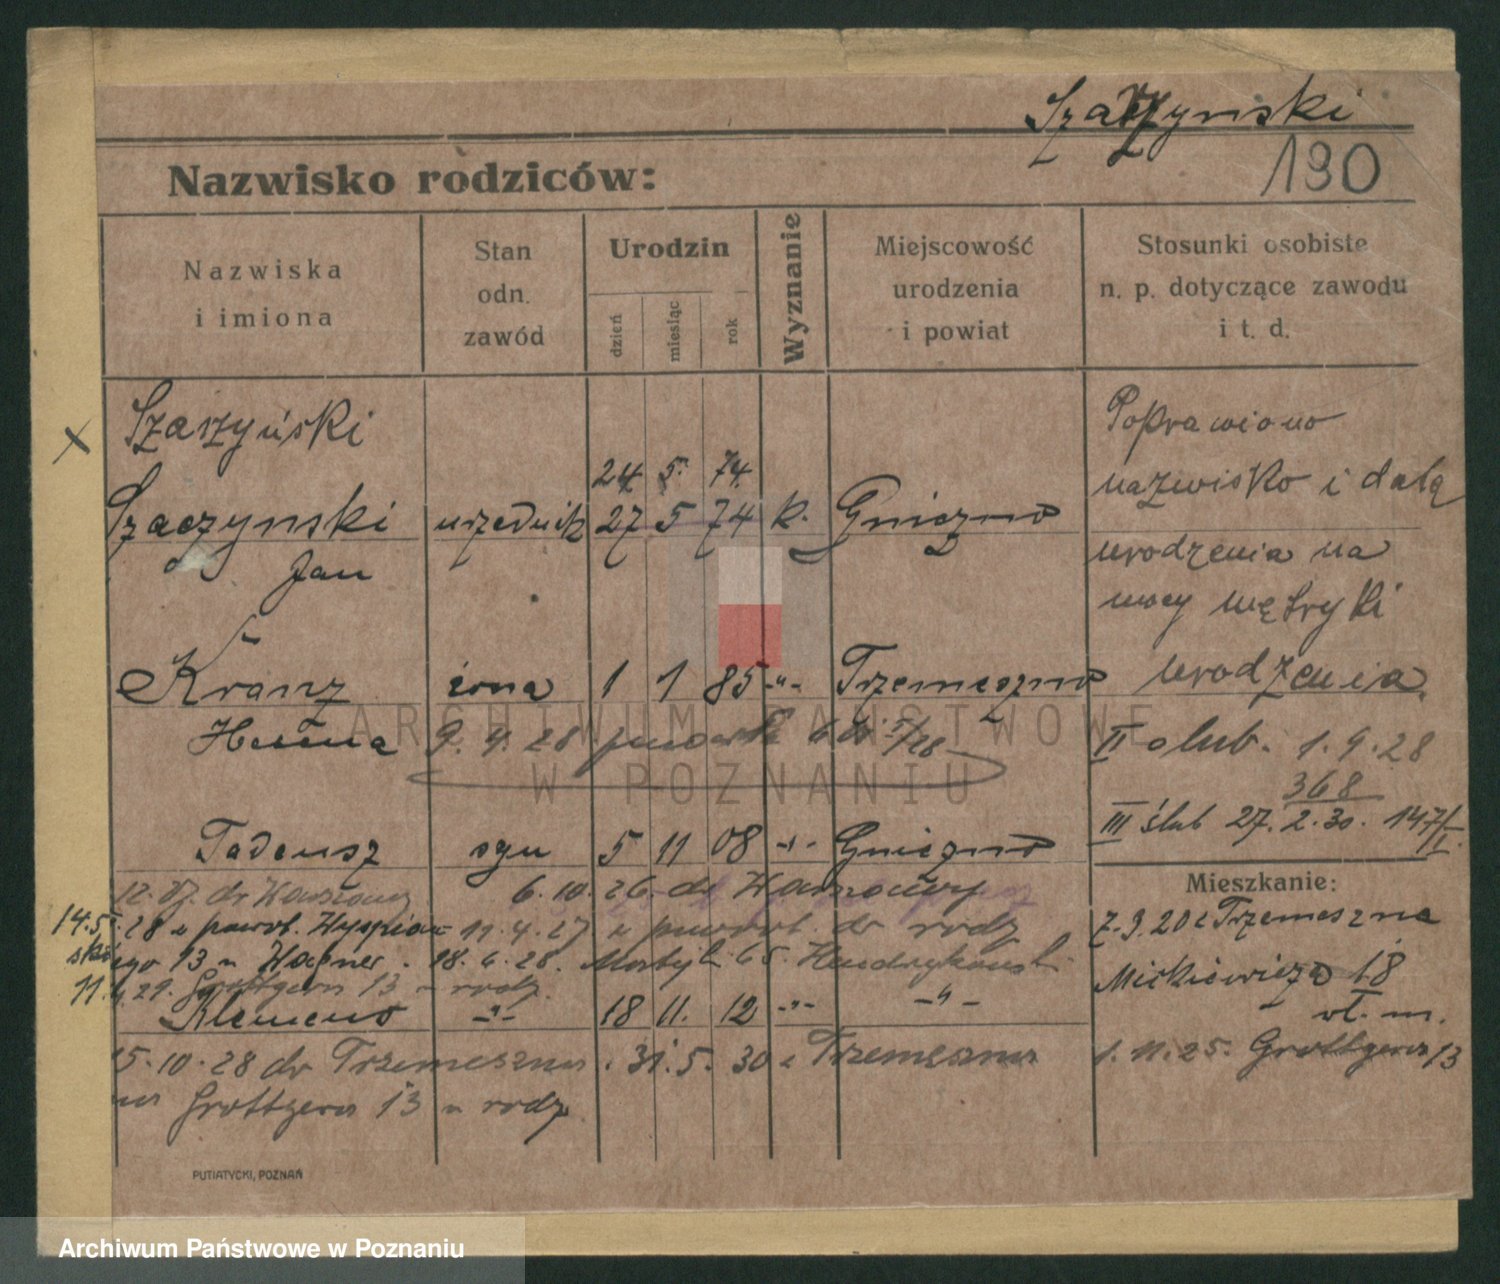 Szarzynski
190
Nazwisko rodziców:
Nazwiska i imiona
Stan odn. zawód
Urodzin
dzień
miesiąc
rok
Wyznanie
Miejscowość urodzenia i powiat
Stosunki osobiste n. p. dotyczące zawodu i t. d.
Szarzyński
24 5. 74.
x
Szaczynski urzędnik 27 5 74 k. Gniezno
Jan
Poprawiono
nazwisko i datę
urodzenia na
mocy metryki
urodzenia.
Kranz żona 1 1 85 -"- Trzemeszno
Helena 9. 4. 28
II ślub. 1.9.28
368
III ślub 27. 2. 30. 147/I
Tadeusz syn 5 11 08 -"- Gniezno
6. 10. 26. do Warszawy
14.5. 28 z powrot. Wyspiań- 11. 4. 27 z powrot. do rodz
skiego 13 u Wagner. 18. 6. 28.
11. 4. 29. Grottgera 13 u rodz.
Klemens -"- 18 11. 12 -"- -"-
15. 10. 28 do Trzemeszna. 31. 5. 30 z Trzemeszna
na Grottgera 13 u rodz.
Mieszkanie:
7. 3. 20 z Trzemeszna
Mickiewicza 18
wł. m.
1. 11. 25. Grottgera 13
PUTIATYCKI, POZNAŃ
ARCHIWUM PAŃSTWOWE
W POZNANIU
Archiwum Państwowe w Poznaniu